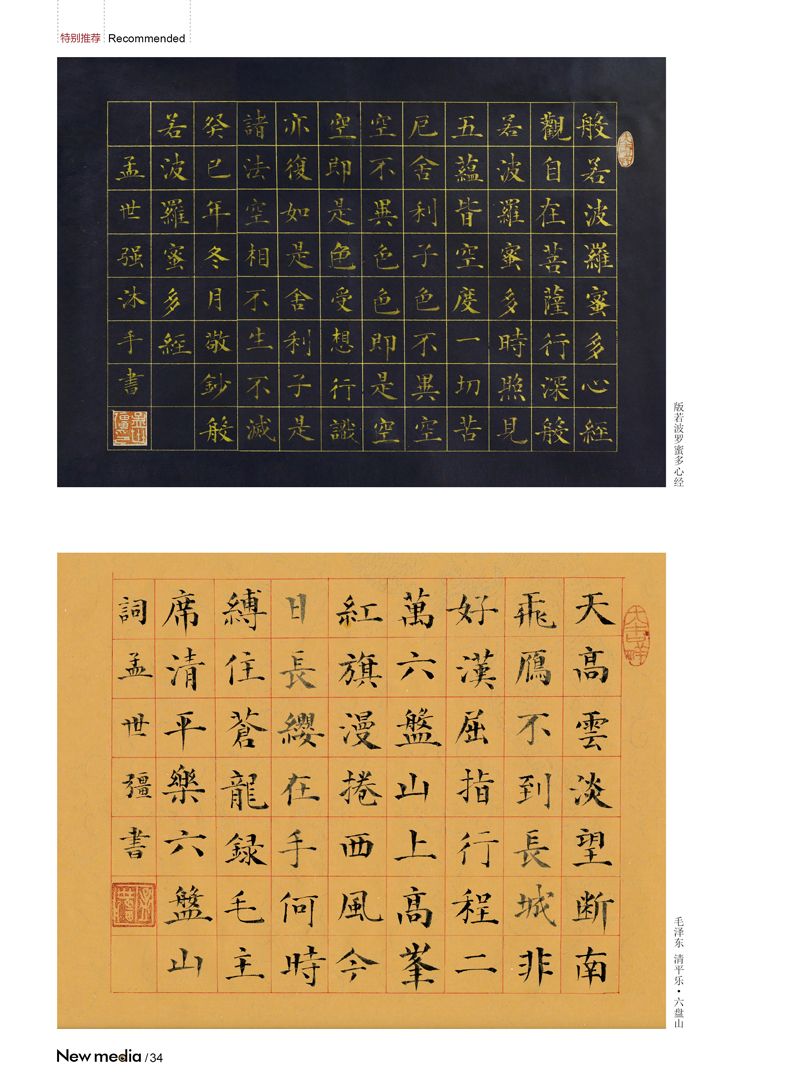 特别推荐 Recommended
般若波羅蜜多心經
觀自在菩薩行深般
若波羅蜜多時照見
五蘊皆空度一切苦
厄舍利子色不異空
空不異色色即是空
空即是色受想行識
亦復如是舍利子是
諸法空相不生不滅
癸巳年冬月敬鈔般
若波羅蜜多經
孟世强沐手書
版若波罗蜜多心经
天高雲淡望断南
飛鴈不到長城非
好漢屈指行程二
萬六盤山上高峯
紅旗漫捲西風今
日長纓在手何時
縛住蒼龍録毛主
席清平樂六盤山
詞孟世彊書
毛泽东 清平乐•六盘山
New media / 34